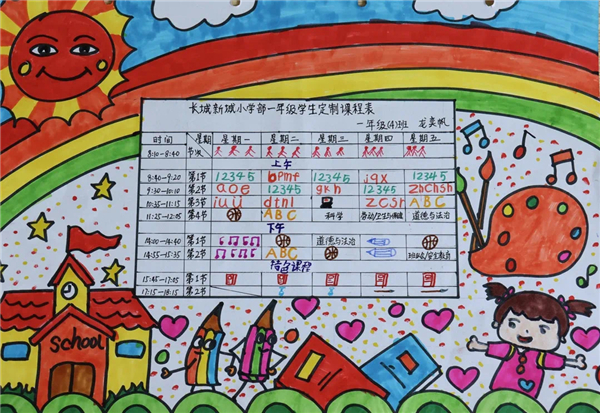 长城新城小学部一年级学生定制课程表
一年级(4)班 花奕帆
时间 星期 节次 星期一 星期二 星期三 星期四 星期五
8:10-8:40
上午
8:40-9:20 第1节 12345 bpmf 12345 jqx 12345
9:30-10:10 第2节 aoe 12345 gkh 12345 zhchsh
10:35-11:15 第3节 iuü dtnl zcsr ABC
11:25-12:05 第4节 ABC 科学 劳动/卫生与健康 道德与法治
下午
14:00-14:40 第1节 道德与法治
14:55-15:35 第2节 ABC 班队会/安全教育
特色课程
15:45-17:05 第1节
17:15-18:15 第2节
School